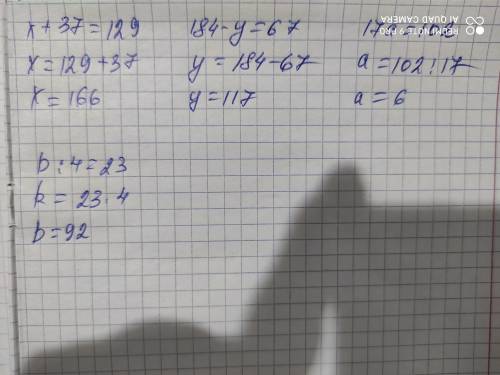 x + 37 = 129
x = 129 + 37
x = 166
184 - y = 67
y = 184 - 67
y = 117
a = 102 : 17
a = 6
b : 4 = 23
b = 23 · 4
b = 92
REDMI NOTE 9 PRO
AI QUAD CAMERA